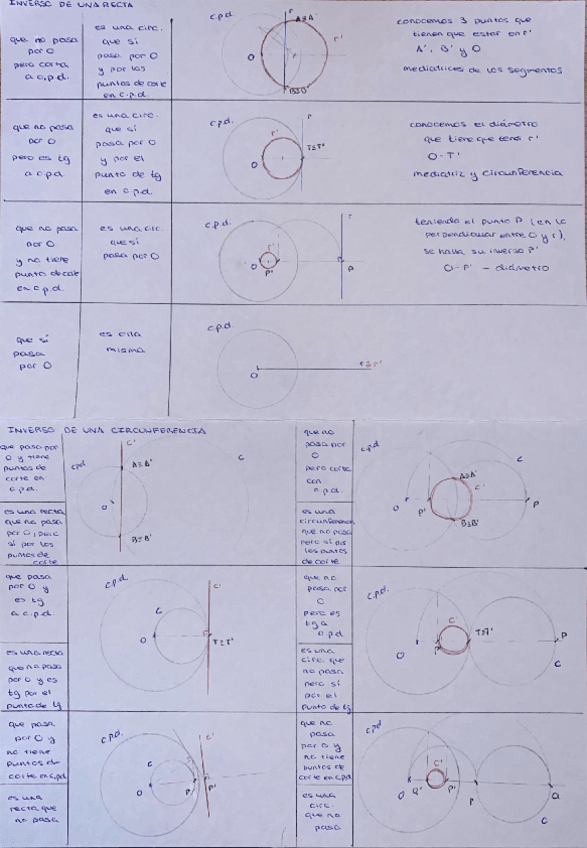 INVERSO DE UNA RECTA
que no pasa
por O
pero corta
a c.p.d.
es una circ.
que sí
pasa por O
y por los
puntos de corte
en c.p.d.
c.p.d.
r
A≡A'
r'
O
B≡B'
conocemos 3 puntos que
tienen que estar en r'
A', B' y O
mediatrices de los segmentos
que no pasa
por O
pero es tg
a c.p.d.
es una circ.
que sí
pasa por O
y por el
punto de tg
en c.p.d.
c.p.d.
r
r'
T≡T'
O
conocemos el diámetro
que tiene que tener r'
O-T'
mediatriz y circunferencia
que no pasa
por O
y no tiene
punto de corte
en c.p.d.
es una circ.
que sí
pasa por O
c.p.d.
r
r'
O
P'
P
teniendo el punto P (en la
perpendicular entre O y r),
se halla su inverso P'
O-P' - diámetro
que sí
pasa
por O
es ella
misma
c.p.d.
O
r≡r'
INVERSO DE UNA CIRCUNFERENCIA
que pasa por
O y tiene
puntos de
corte en
c.p.d.
es una recta
que no pasa
por O, pero
sí por los
puntos de
corte
cpd
c'
A≡A'
c
O
B≡B'
que no
pasa por
O
pero corta
con
c.p.d.
es una
circunferencia
que no pasa
pero sí por
los puntos
de corte
cpd
c
A≡A'
c'
O
P'
P
B≡B'
que pasa
por O y
es tg
a c.p.d.
es una recta
que no pasa
por O y es
tg por el
punto de tg
c.p.d.
c'
c
O
T≡T'
que no
pasa por
O
pero es
tg a
c.p.d.
es una
circ. que
no pasa
pero sí
por el
punto de tg
c.p.d.
c'
T≡T'
O
P'
P
c
que pasa
por O y
no tiene
puntos de
corte en c.p.d
es una
recta que
no pasa
c.p.d.
c'
c
O
P
P'
que no
pasa
por O y
no tiene
puntos de
corte en c.p.d
es una
circ.
que no
pasa
cpd
c'
O
Q'
P'
P
Q
c